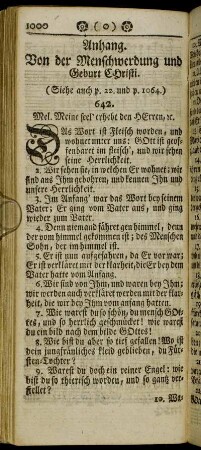 1000
Anhang.
Von der Menschwerdung und
Geburt CHristi.
(Siehe auch p. 22. und p. 1064.)
642.
Mel. Meine seel' erhebt den HErren, ꝛc.
DAs Wort ist Fleisch worden, und
wohnet unter uns: GOtt ist geof-
fenbaret im fleisch', und wir sehen
seine Herrlichkeit.
2. Wir sehen sie, in welchen Er wohnet: wir
sind aus Jhm gebohren, und kennen Jhn und
unsere Herrlichkeit.
3. Jm Anfang' war das Wort bey seinem
Vater; Er ging vom Vater aus, und ging
wieder zum Vater.
4. Denn niemand fähret gen himmel, denn
der vom himmel gekommen ist; des Menschen
Sohn, der im himmel ist.
5. Er ist nun aufgefahren, da Er vor war;
Er ist verkläret mit der klarheit, die Er bey dem
Vater hatte von Anfang.
6. Wir sind von Jhm, und waren bey Jhm;
wir werden auch verkläret werden mit der klar-
heit, die wir bey Jhm vom anfang hatten.
7. Wie warest du so schön, du mensch GOt-
tes, und so herrlich geschmücket! wie warest
du ein bild nach dem bilde GOttes!
8. Wie bist du aber so tief gefallen! Wo ist
dein jungfräuliches kleid geblieben, du Für-
sten-Tochter?
9. Warest du doch ein reiner Engel: wie
bist du so thierisch worden, und so gantz ver-
stellet?
10. Wie